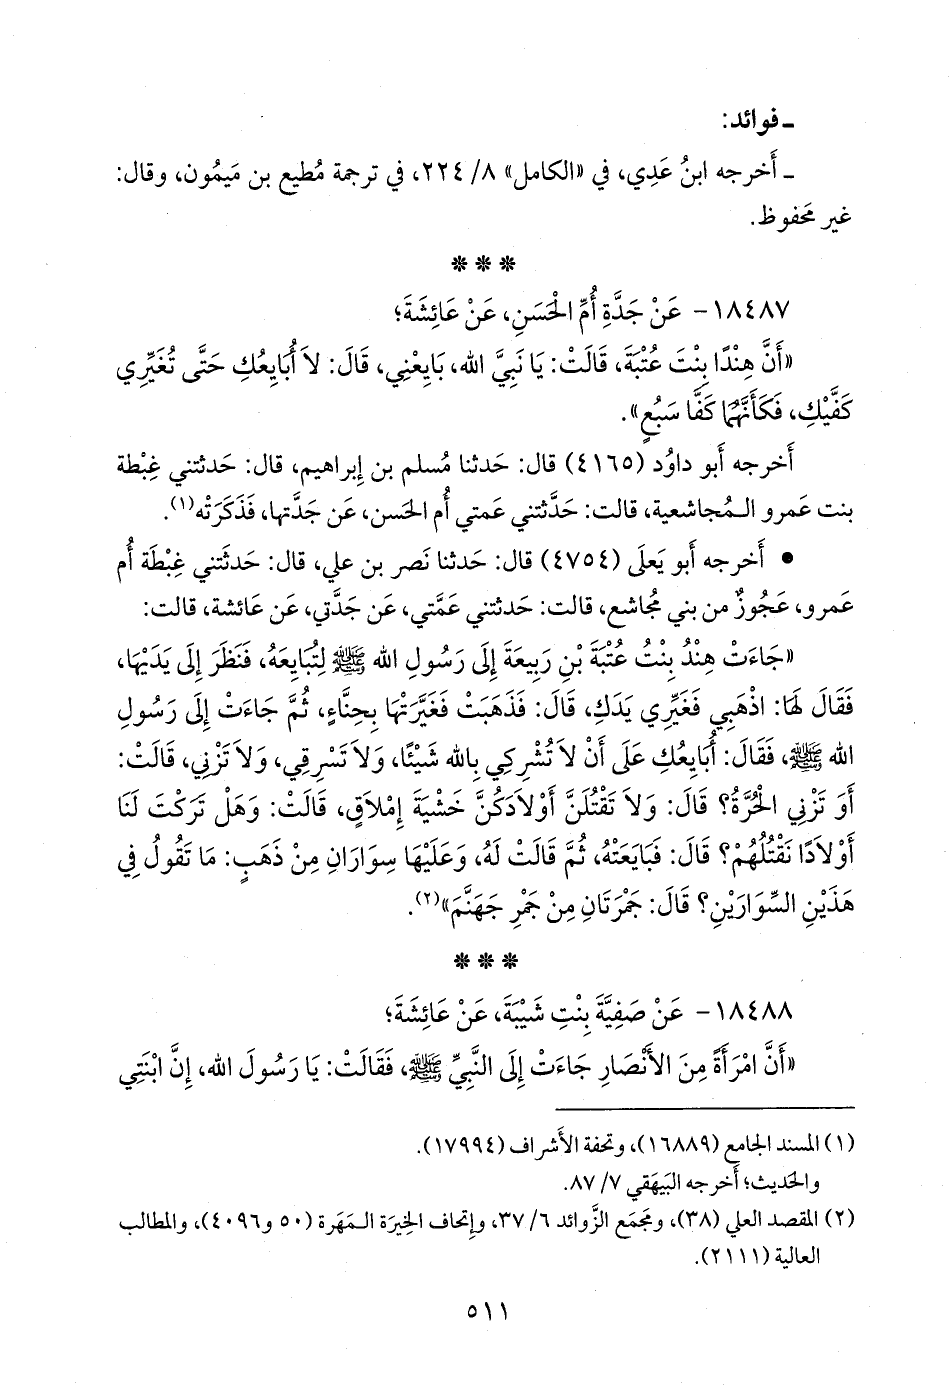 ـ فوائد:
ـ أَخرجه ابنُ عَدِي، في «الكامل» ٨/ ٢٢٤، في ترجمة مُطيع بن مَيمُون، وقال:
غير مَحفوظ.
* * *
١٨٤٨٧- عَنْ جَدَّةِ أُمِّ الْحَسَنِ، عَنْ عَائِشَةَ؛
«أَنَّ هِنْدًا بِنْتَ عُتْبَةَ، قَالَتْ: يَا نَبِيَّ الله، بَايِعْنِي، قَالَ: لاَ أُبَايِعُكِ حَتَّى تُغَيِّرِي
كَفَّيْكِ، فَكَأَنَّهُمَا كَفَّا سَبُعٍ».
أَخرجه أَبو داوُد (٤١٦٥) قال: حَدثنا مُسلم بن إِبراهيم، قال: حَدثتني غِبْطة
بنت عَمرو الـمُجاشعية، قالت: حَدَّثتني عَمتي أُم الحَسن، عَن جَدَّتها، فَذَكَرَتْه(١).
• أَخرجه أَبو يَعلَى (٤٧٥٤) قال: حَدثنا نَصر بن علي، قال: حَدثَتني غِبْطَة أُم
عَمرو، عَجُوزٌ من بني مُجاشع، قالت: حَدثتني عَمَّتي، عَن جَدَّتي، عَن عَائشة، قالت:
«جَاءَتْ هِنْدُ بِنْتُ عُتْبَةَ بْنِ رَبِيعَةَ إِلَى رَسُولِ الله ﷺ لِتُبَايِعَهُ، فَنَظَرَ إِلَى يَدَيْهَا،
فَقَالَ لَهَا: اذْهَبِي فَغَيِّرِي يَدَكِ، قَالَ: فَذَهَبَتْ فَغَيَّرَتْهَا بِحِنَّاءٍ، ثُمَّ جَاءَتْ إِلَى رَسُولِ
الله ﷺ، فَقَالَ: أُبَايِعُكِ عَلَى أَنْ لاَ تُشْرِكِي بِالله شَيْئًا، وَلاَ تَسْرِقِي، وَلاَ تَزْنِي، قَالَتْ:
أَوَ تَزْنِي الْحُرَّةُ؟ قَالَ: وَلاَ تَقْتُلَنَّ أَوْلاَدَكُنَّ خَشْيَةَ إِمْلاَقٍ، قَالَتْ: وَهَلْ تَرَكْتَ لَنَا
أَوْلاَدًا نَقْتُلُهُمْ؟ قَالَ: فَبَايَعَتْهُ، ثُمَّ قَالَتْ لَهُ، وَعَلَيْهَا سِوَارَانِ مِنْ ذَهَبٍ: مَا تَقُولُ فِي
هَذَيْنِ السِّوَارَيْنِ؟ قَالَ: جَمْرَتَانِ مِنْ جَمْرِ جَهَنَّمَ»(٢).
* * *
١٨٤٨٨- عَنْ صَفِيَّةَ بِنْتِ شَيْبَةَ، عَنْ عَائِشَةَ؛
«أَنَّ امْرَأَةً مِنَ الأَنْصَارِ جَاءَتْ إِلَى النَّبِيِّ ﷺ، فَقَالَتْ: يَا رَسُولَ الله، إِنَّ ابْنَتِي
(١) المسند الجامع (١٦٨٨٩)، وتحفة الأَشراف (١٧٩٩٤).
والحَديث؛ أَخرجه البَيهَقي ٧/ ٨٧.
(٢) المقصد العلي (٣٨)، ومَجمَع الزَّوائد ٦/ ٣٧، وإِتحاف الخِيرَة الـمَهَرة (٥٠ و٤٠٩٦)، والمطالب
العالية (٢١١١).
٥١١